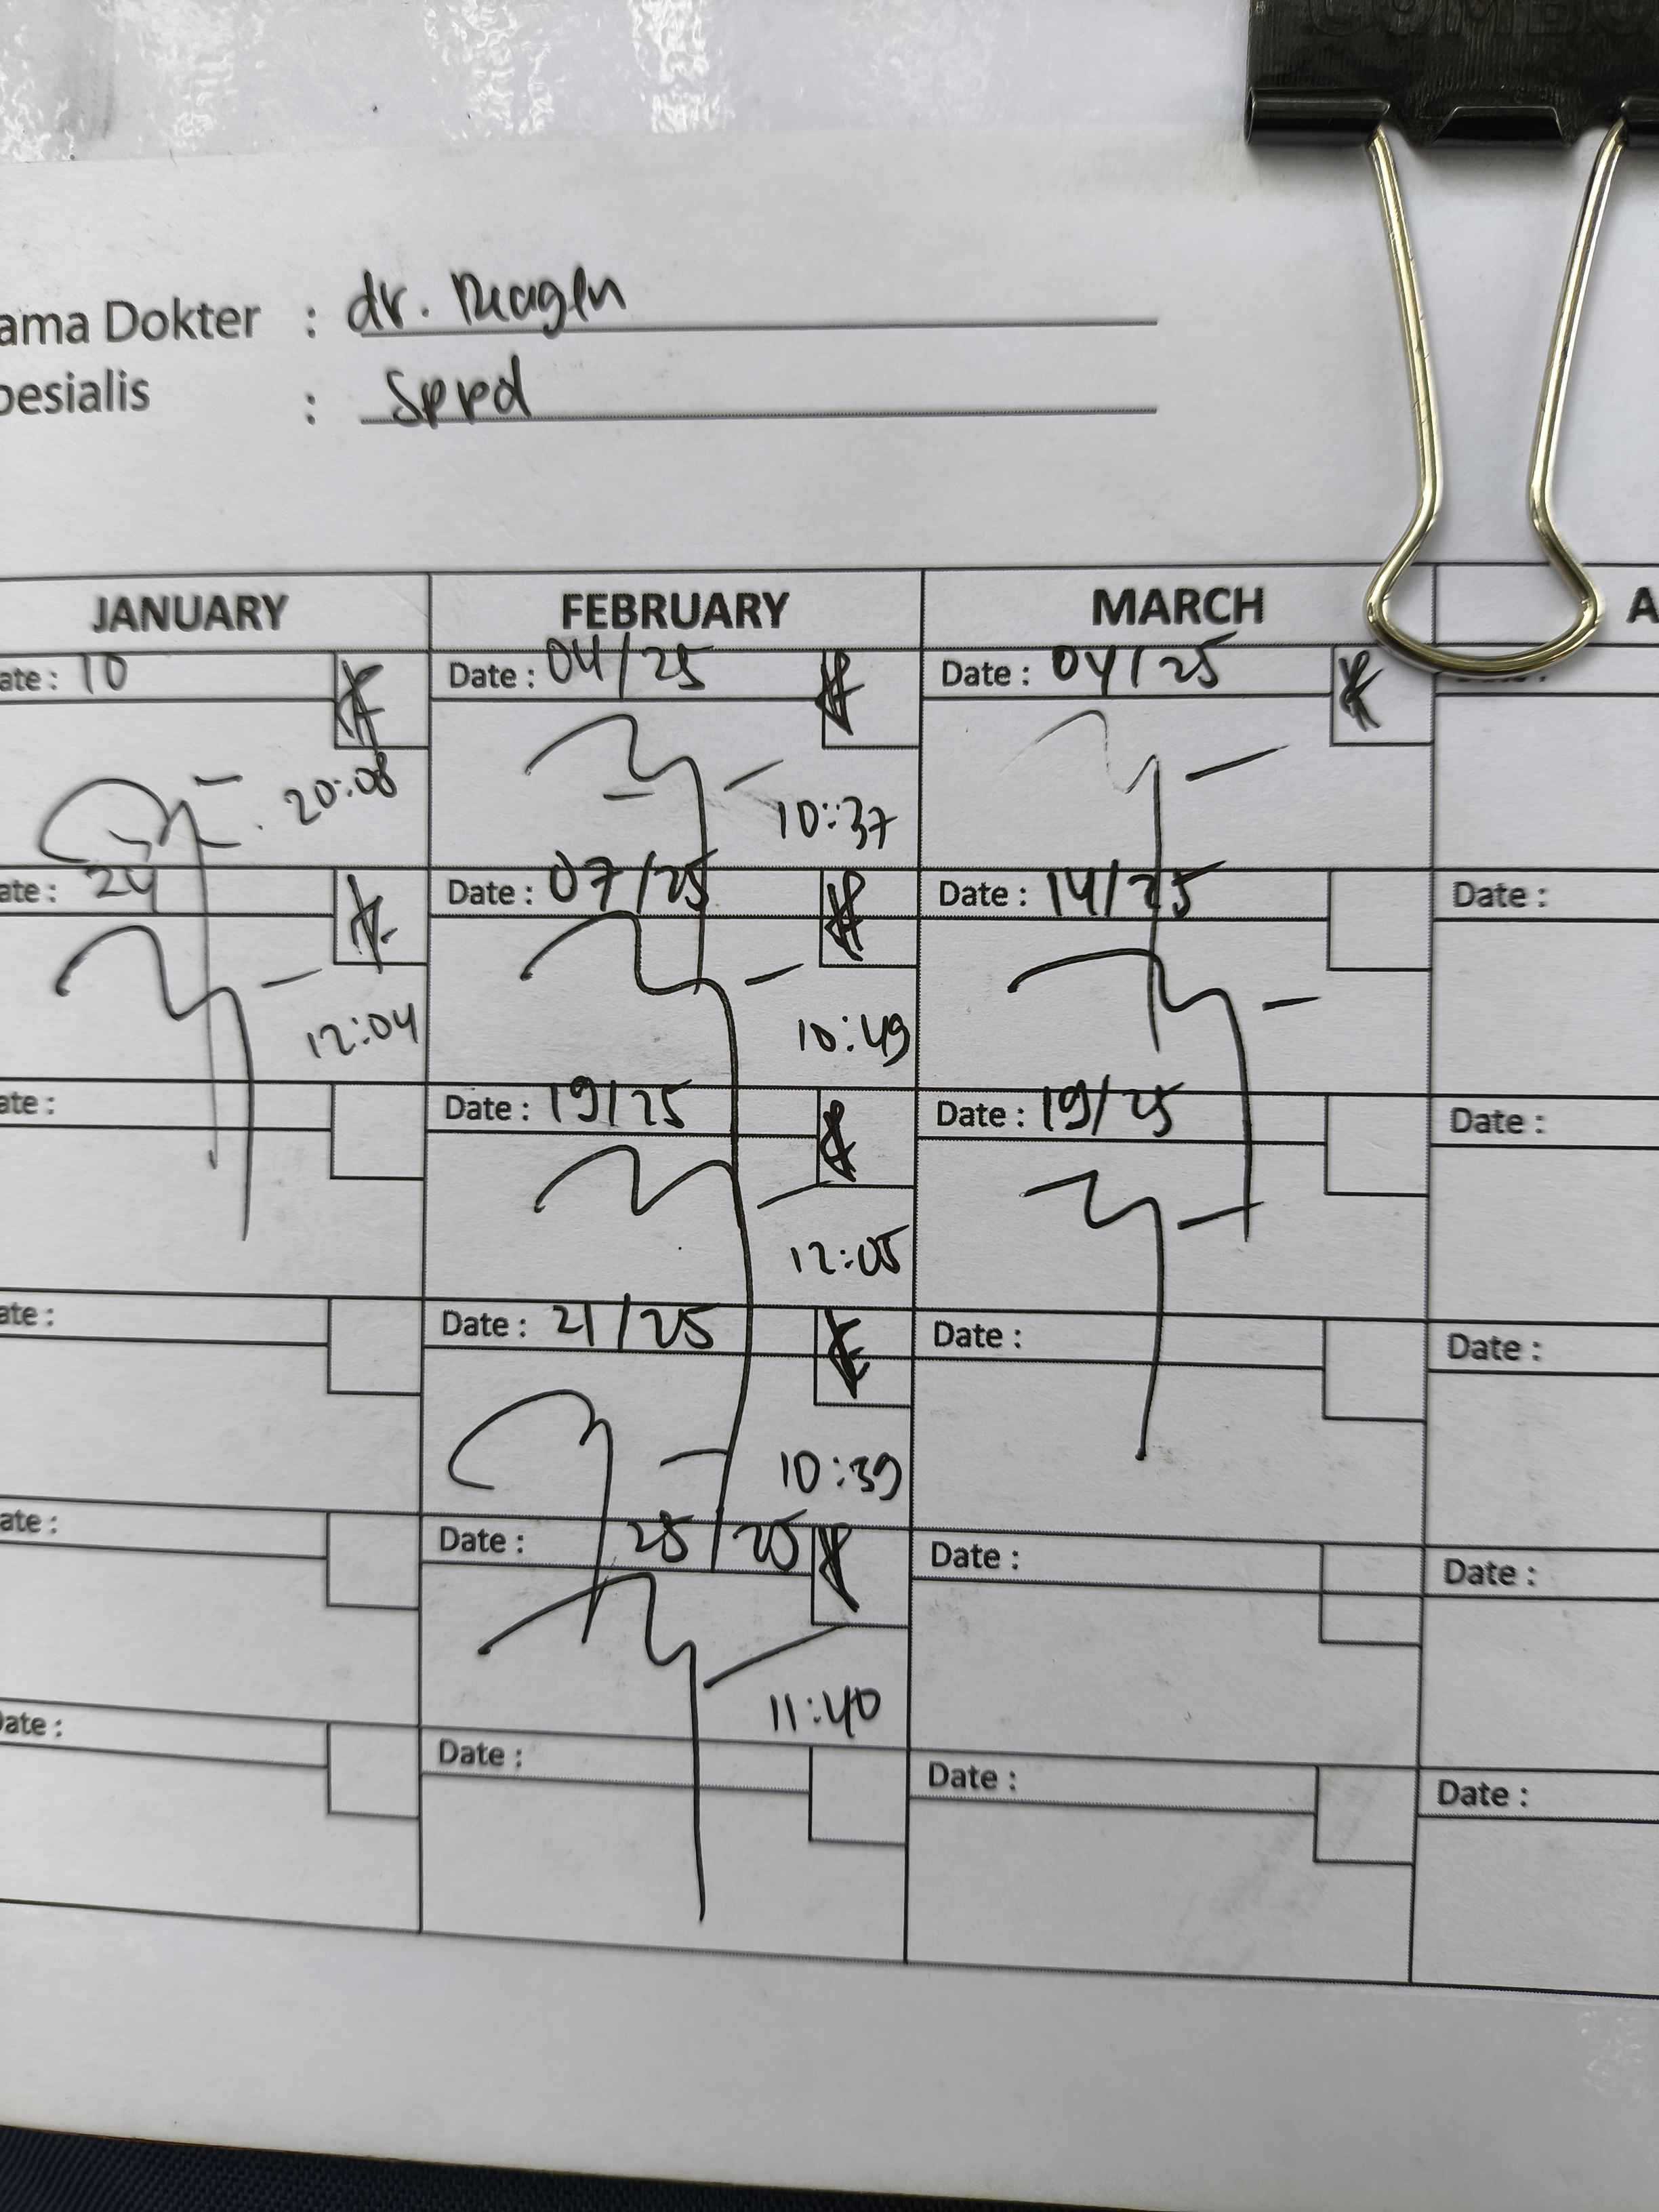 ama Dokter : dr. Reagen
pesialis : Sppd
JANUARY FEBRUARY MARCH A
ate : 10 Date : 04/25 Date : 04/25
20:08 10:37
ate : 24 Date : 07/25 Date : 14/25 Date :
12:04 10:49
ate : Date : 19/25 Date : 19/25 Date :
12:05
ate : Date : 21/25 Date : Date :
10:39
ate : Date : 25/25 Date : Date :
11:40
Date : Date : Date : Date :